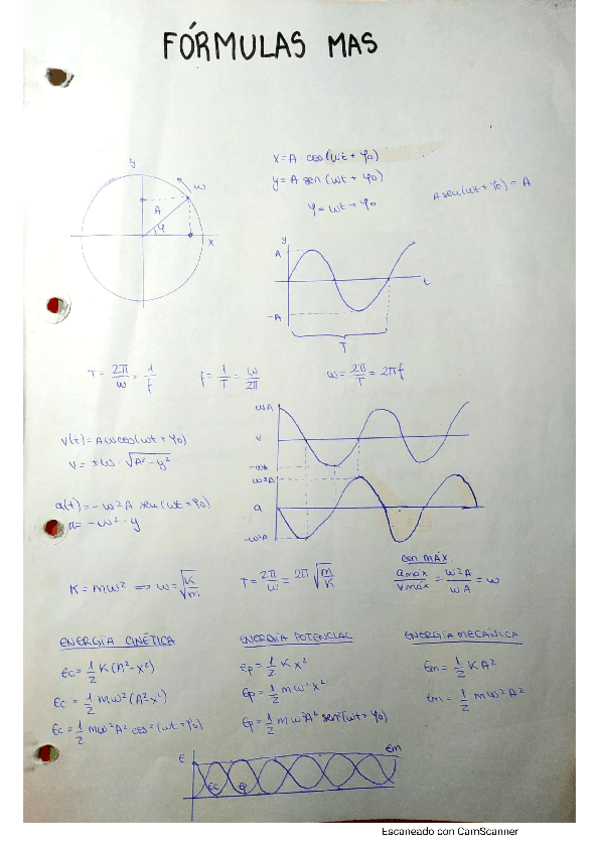 FÓRMULAS MAS
x=A cos(ωt+φ₀)
y=A sen(ωt+φ₀)
φ=ωt+φ₀
A sen(ωt+φ₀)=A
y
ω
A
φ
x
y
A
-A
t
T
T=2π/ω=1/f
f=1/T=ω/2π
ω=2π/T=2πf
v(t)=Aωcos(ωt+φ₀)
v=±ω·√(A²-y²)
a(t)=-ω²A sen(ωt+φ₀)
a=-ω²·y
ωA
v
-ωA
ω²A
a
-ω²A
K=mω² ⟹ ω=√(K/m)
T=2π/ω=2π√(m/K)
con MÁX.
amáx/vmáx=ω²A/ωA=ω
ENERGÍA CINÉTICA
Ec=1/2 K(A²-x²)
Ec=1/2 mω²(A²-x²)
Ec=1/2 mω²A² cos²(ωt+φ₀)
ENERGÍA POTENCIAL
Ep=1/2 Kx²
Ep=1/2 mω²x²
Ep=1/2 mω²A² sen²(ωt+φ₀)
ENERGÍA MECÁNICA
Em=1/2 KA²
Em=1/2 mω²A²
E
Ec
Ep
Em
Escaneado con CamScanner